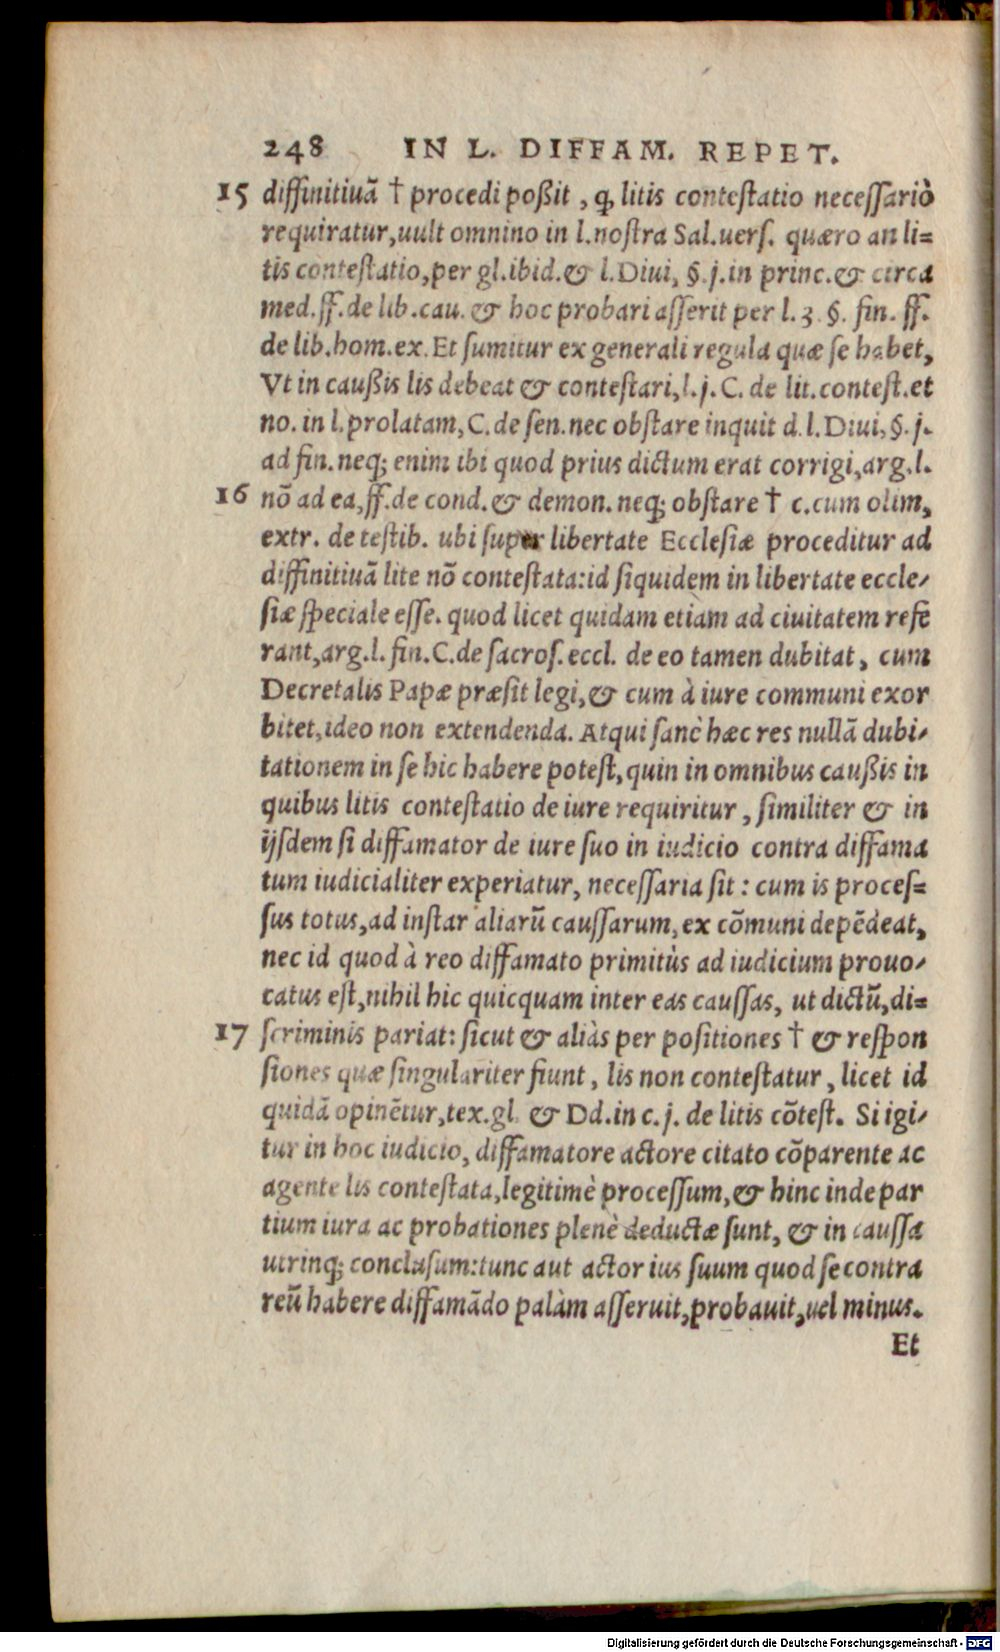 248 IN L. DIFFAM. REPET.
15 diffinitiuã † procedi poßit, ꝙ litis contestatio necessariò
requiratur, uult omnino in l. nostra Sal. uers. quæro an li=
tis contestatio, per gl. ibid. & l. Diui, §. j. in princ. & circa
med. ff. de lib. cau. & hoc probari asserit per l. 3. §. fin. ff.
de lib. hom. ex. Et sumitur ex generali regula quæ se habet,
Vt in caußis lis debeat & contestari, l. j. C. de lit. contest. et
no. in l. prolatam, C. de sen. nec obstare inquit d. l. Diui, §. j.
ad fin. neq; enim ibi quod prius dictum erat corrigi, arg. l.
16 nõ ad ea, ff. de cond. & demon. neq; obstare † c. cum olim,
extr. de testib. ubi super libertate Ecclesiæ proceditur ad
diffinitiuã lite nõ contestata: id siquidem in libertate eccle-
siæ speciale esse. quod licet quidam etiàm ad ciuitatem refe
rant, arg. l. fin. C. de sacros. eccl. de eo tamen dubitat, cum
Decretalis Papæ præsit legi, & cum à iure communi exor
bitet, ideo non extendenda. Atqui sanè hæc res nullã dubi-
tationem in se hic habere potest, quin in omnibus caußis in
quibus litis contestatio de iure requiritur, similiter & in
ijsdem si diffamator de iure suo in iudicio contra diffama
tum iudicialiter experiatur, necessaria sit: cum is proces=
sus totus, ad instar aliarũ caussarum, ex cõmuni depẽdeat,
nec id quod à reo diffamato primitùs ad iudicium prouo-
catus est, nihil hic quicquam inter eas caussas, ut dictũ, di=
17 scriminis pariat: sicut & aliàs per positiones † & respon
siones quæ singulariter fiunt, lis non contestatur, licet id
quidã opinẽtur, tex. gl. & Dd. in c. j. de litis cõtest. Si igi-
tur in hoc iudicio, diffamatore actore citato cõparente ac
agente lis contestata, legitimè processum, & hinc inde par
tium iura ac probationes plenè deductæ sunt, & in caussa
utrinq; conclusum: tunc aut actor ius suum quod se contra
reũ habere diffamãdo palàm asseruit, probauit, uel minus.
Et
Digitalisierung gefördert durch die Deutsche Forschungsgemeinschaft - DFG